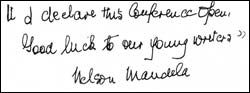 "I declare this Conference Open.
Good luck to our young writers"
Nelson Mandela